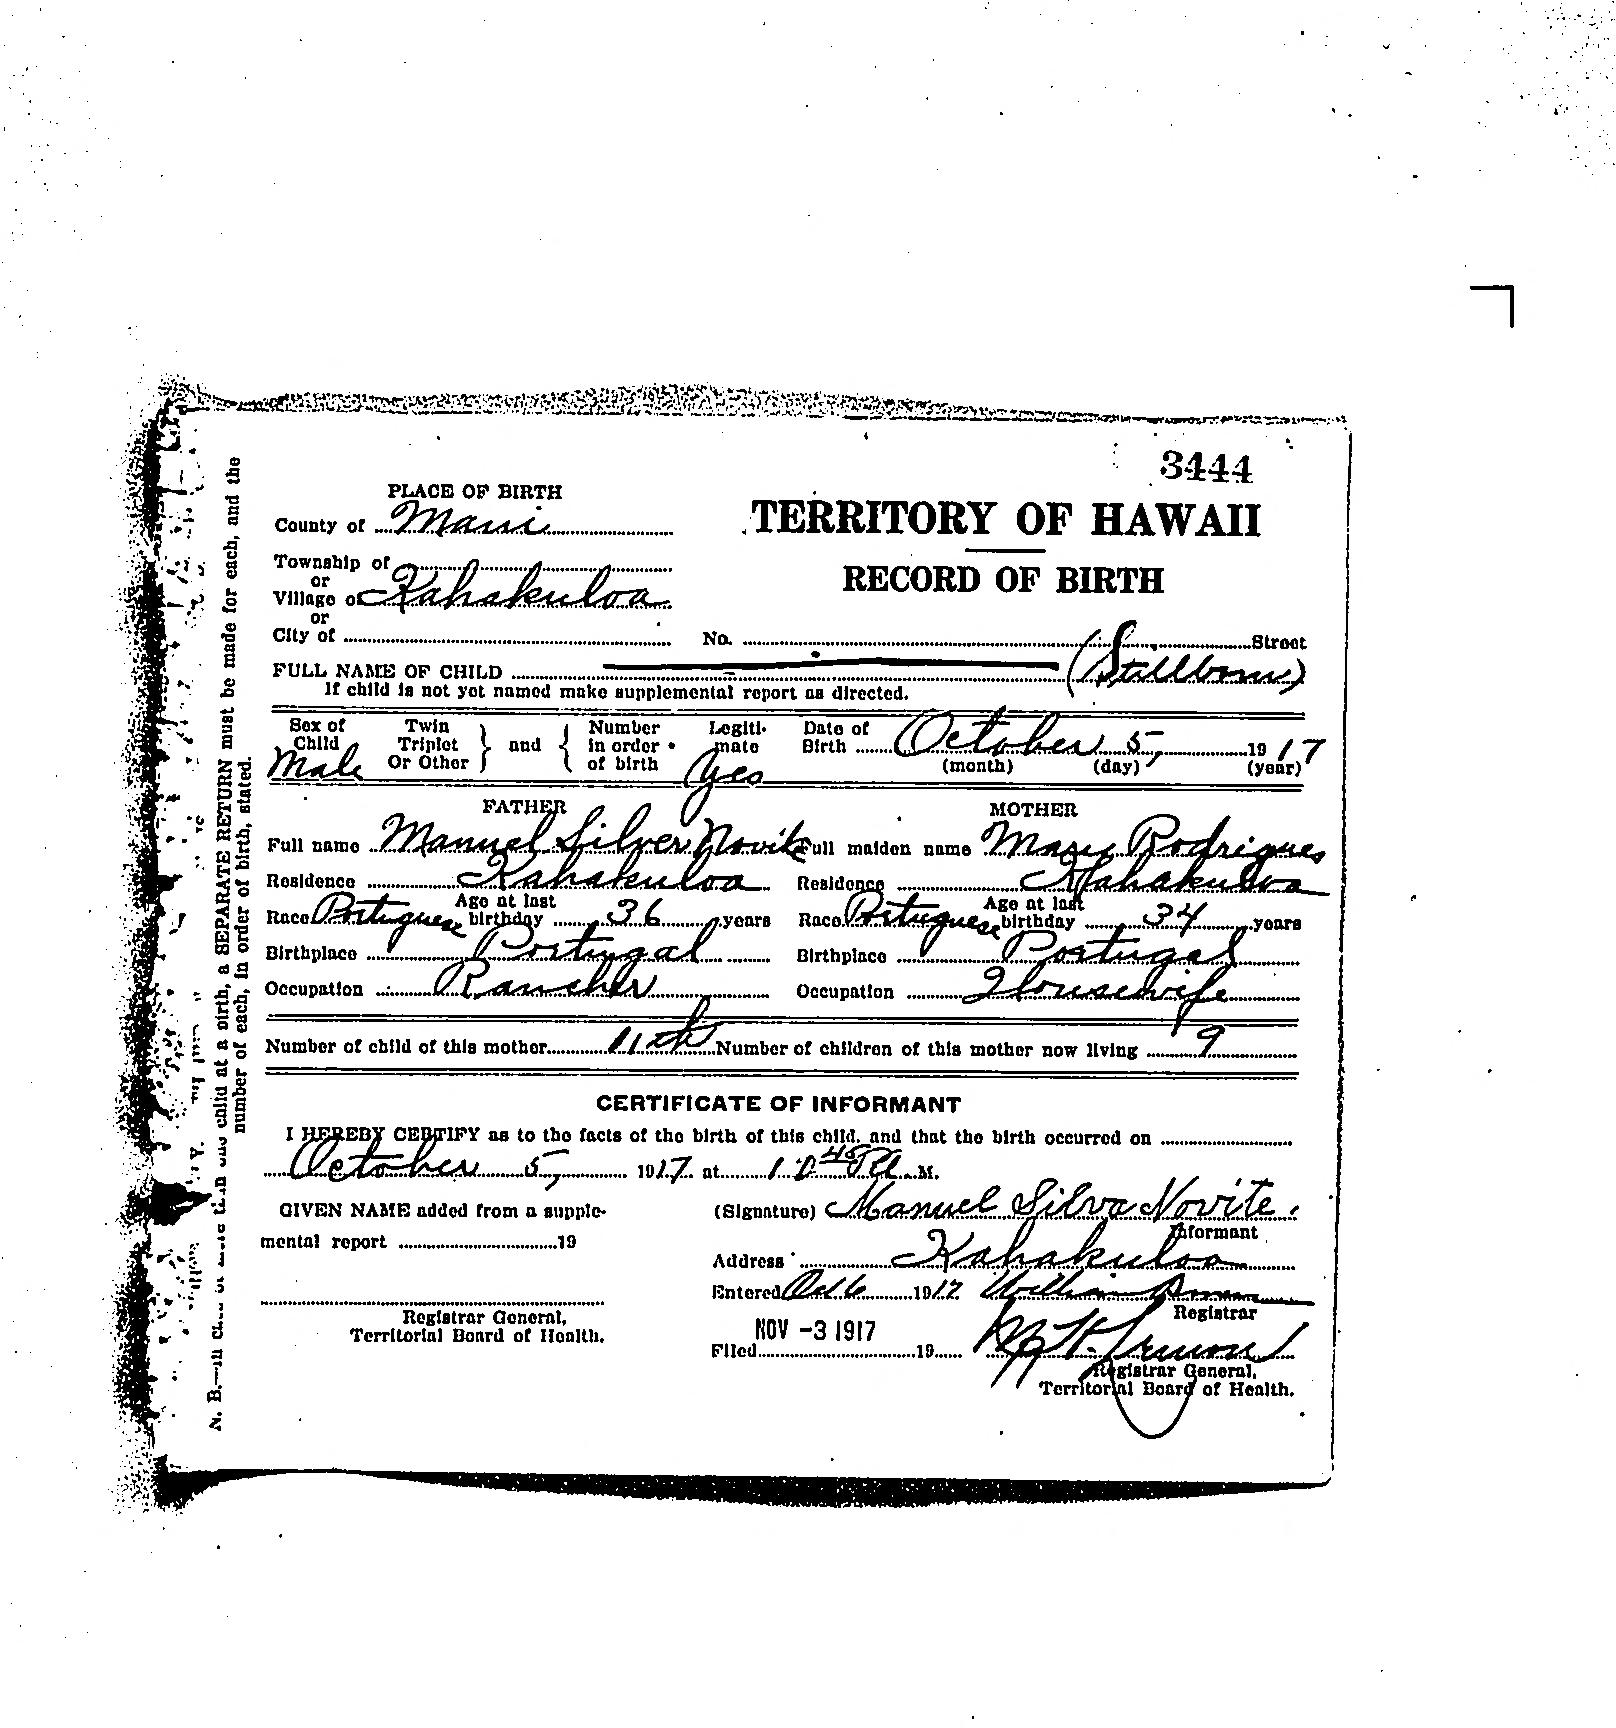 3444
PLACE OF BIRTH
County of Maui
TERRITORY OF HAWAII
Township of
or
RECORD OF BIRTH
Village of Kahakuloa
or
City of No. Street
FULL NAME OF CHILD (Stillborn)
If child is not yet named make supplemental report as directed.
Sex of Child Male Twin Triplet Or Other } and { Number in order of birth Legitimate Yes Date of Birth October 5, 1917
(month) (day) (year)
FATHER MOTHER
Full name Manuel Silver Novite Full maiden name Mary Rodrigues
Residence Kahakuloa Residence Kahakuloa
Race Portuguese Age at last birthday 36 years Race Portuguese Age at last birthday 34 years
Birthplace Portugal Birthplace Portugal
Occupation Rancher Occupation Housewife
Number of child of this mother 11th Number of children of this mother now living 9
CERTIFICATE OF INFORMANT
I HEREBY CERTIFY as to the facts of the birth of this child, and that the birth occurred on
October 5, 1917 at M.
GIVEN NAME added from a supple-
mental report 19
Registrar General,
Territorial Board of Health.
(Signature) Manuel Silva Novite.
Informant
Address Kahakuloa
Entered Oct 6 1917 William
Registrar
NOV -3 1917
Filed 19
Registrar General,
Territorial Board of Health.
N. B.—In child at a birth, a SEPARATE RETURN must be made for each, and the
number of each, in order of birth, stated.